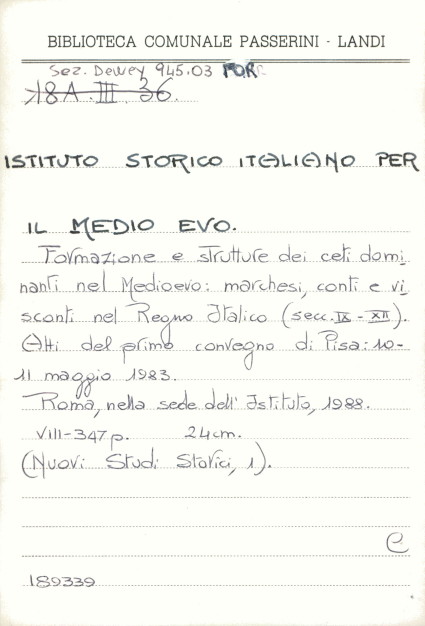 BIBLIOTECA COMUNALE PASSERINI - LANDI
Sez. Dewey 945.03 FOR
18 A. III. 36.
ISTITUTO STORICO ITALIANO PER
IL MEDIO EVO.
Formazione e strutture dei ceti domi
nanti nel Medioevo: marchesi, conti e vi
sconti nel Regno Italico (secc. IX - XII).
Atti del primo convegno di Pisa: 10-
11 maggio 1983.
Roma, nella sede dell' Istituto, 1988.
VIII-347 p. 24 cm.
(Nuovi Studi Storici, 1).
C
189339